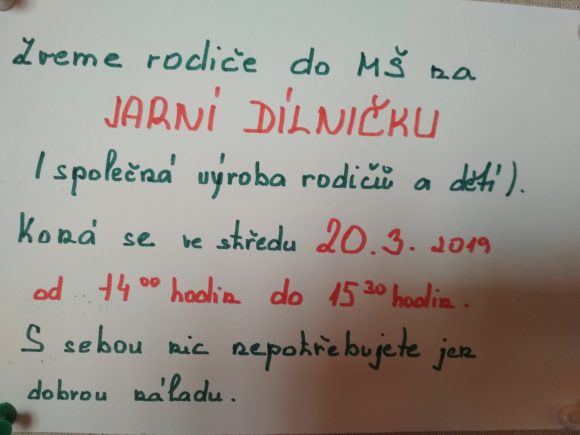 Zveme rodiče do MŠ na
JARNÍ DÍLNIČKU
(společná výroba rodičů a dětí).
Koná se ve středu 20.3.2019
od 14⁰⁰ hodin do 15³⁰ hodin.
S sebou nic nepotřebujete jen
dobrou náladu.